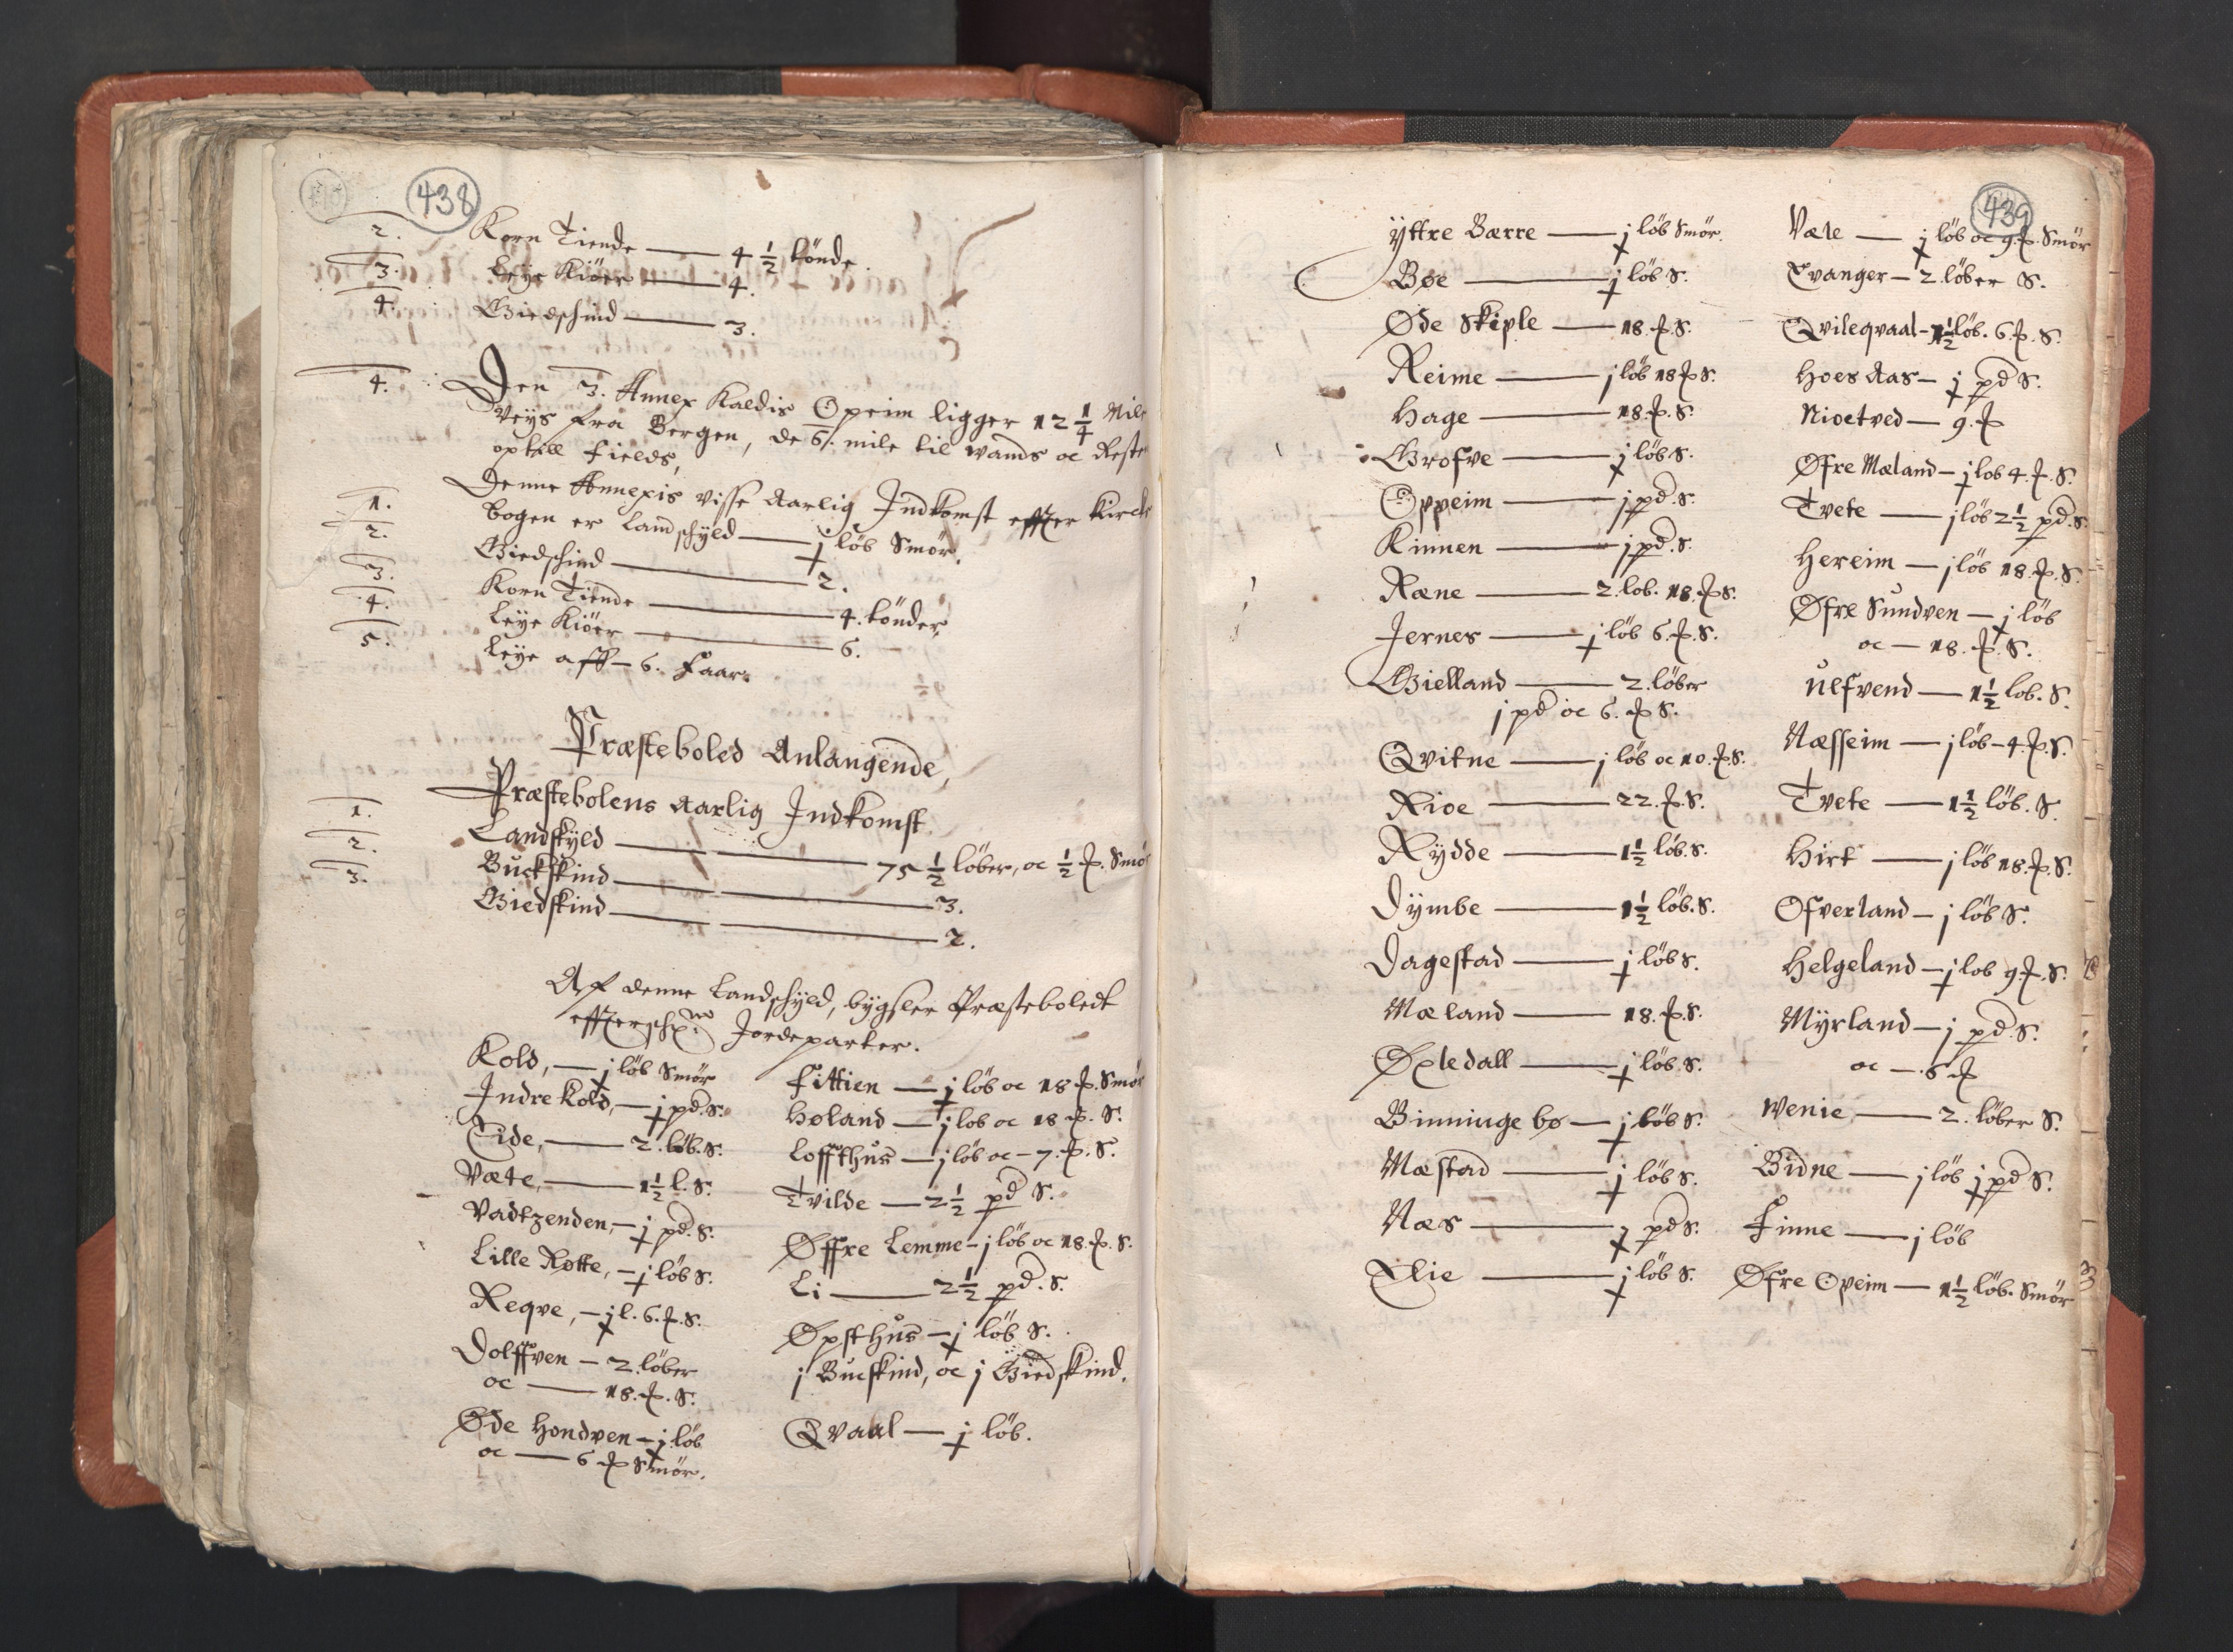 438
2. Korn Tiende — 4 1/2 tönde.
3. Leÿe Kiöer — 4.
4. Giedschind — 3.
4. Den 3. Annex Kaldis Opeim ligger 12 1/4 Mile
Veÿs fra Bergen, de 6. mile til wands oc Reste
optill Fields,
Denne Annexis visse Aarlig Indkomst effter Kircke
1. bogen er Landschÿld — j löb Smör.
2. Giedschind — 2.
3. Korn Tiende — 4. tönder,
4. Leÿe Kiöer — 6.
5. Leÿe aff — 6. Faar.
Præsteboled Anlangende,
Præstebolens Aarlig Indkomst
1. Landskÿld — 75 1/2 löber, oc 1/2 ꝑ. Smör
2. Buckskind — 3.
3. Giedskind — 2.
Af denne Landschÿld, bygsler Præsteboledt
Jordeparter.
Kold, — j löb Smör
Indre Kold, — j pd. S.
Tide, — 2. löb. S.
Væte, — 1 1/2 l. S.
Vadtzenden, — j pd. S.
Lille Røtte, — j löb S.
Reqve, — j l. 6. ꝑ. S.
Dolffven — 2. löber
oc — 18. ꝑ. S.
Øde Hondven — j löb
oc — 6 ꝑ Smör.
Fittien — j löb oc 18 ꝑ. Smör
Høland — j löb oc 18 ꝑ. S.
Loffthus — j löb oc — 7. ꝑ. S.
Tvilde — 2 1/2 pd S.
Øffre Lemme — j löb oc 18. ꝑ. S.
Li — 2 1/2 pd. S.
Øpsthus — j löb S.
j Bucskind, oc j Giedskind.
Qvaal — j löb.
439
ÿttre Bærre — j löb Smör.
Bøe — j löb S.
Øde Skiple — 18. ꝑ. S.
Reime — j löb 18 ꝑ S.
Hage — 18. ꝑ. S.
Grofve — j löb S.
Oppeim — j pd. S.
Kinnen — j pd. S.
Ræne — 2. löb. 18. ꝑ S.
Jernes — j löb 6. ꝑ. S.
Gielland — 2. löber
j pd oc 6. ꝑ S.
Qvitne — j löb oc 10. ꝑ. S.
Rioe — 22. ꝑ. S.
Rÿdde — 1 1/2 löb. S.
Dÿmbe — 1 1/2 löb. S.
Dagestad — j löb S.
Mæland — 18. ꝑ. S.
Øxledall — j löb. S.
Binninge bø — j löb S.
Mæstad — j löb S.
Næs — j pd S.
Elie — j löb S.
Væle — j löb oc 9. ꝑ. Smör
Evanger — 2. löber S.
Qvileqvaal — 1 1/2 löb. 6. ꝑ. S.
Hoes Aas — j pd S.
Nioetved — 9. ꝑ
Øfre Mæland — j löb 4. ꝑ. S.
Tvete — j löb 2 1/2 pd. S.
Hereim — j löb 18. ꝑ. S.
Øfre Sundven — j löb
oc — 18. ꝑ. S.
Ulfvend — 1 1/2 löb. S.
Næsseim — j löb — 4. ꝑ. S.
Tvete — 1 1/2 löb. S.
Hirt — j löb 18. ꝑ. S.
Ofverland — j löb S.
Helgeland — j löb 9. ꝑ. S.
Mÿrland — j pd. S.
oc — 6 ꝑ
Wenie — 2. löber S.
Bidne — j löb j pd S.
Finne — j löb
Øfre Opeim — 1 1/2 löb. Smör